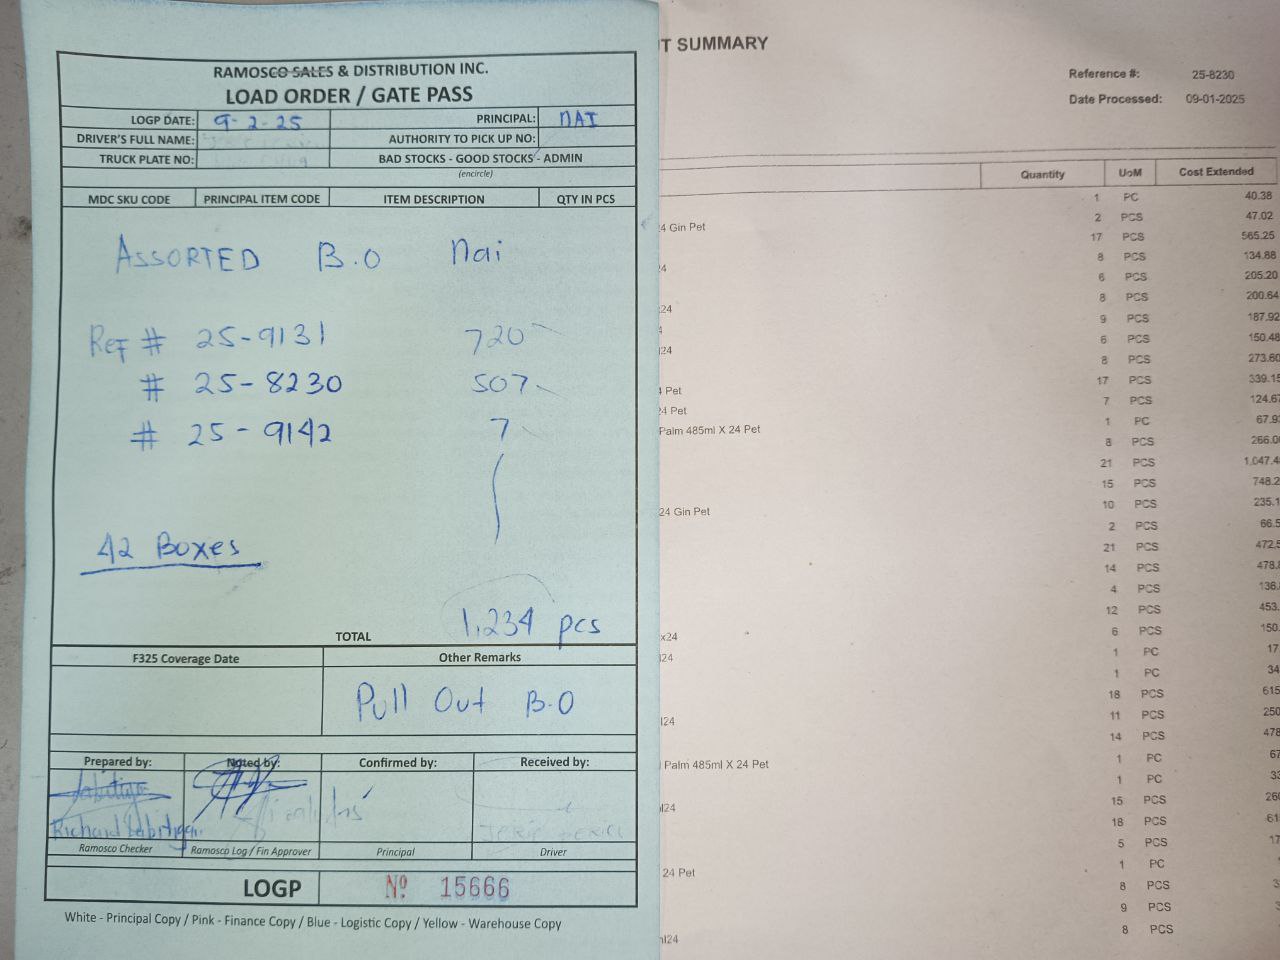 RAMOSCO SALES & DISTRIBUTION INC.
LOAD ORDER / GATE PASS
LOGP DATE: 9-2-25 PRINCIPAL: NAI
DRIVER'S FULL NAME: AUTHORITY TO PICK UP NO:
TRUCK PLATE NO: BAD STOCKS - GOOD STOCKS - ADMIN
(encircle)
MDC SKU CODE PRINCIPAL ITEM CODE ITEM DESCRIPTION QTY IN PCS
ASSORTED B.O Nai
Ref # 25-9131 720
# 25-8230 507
# 25-9142 7
42 Boxes
TOTAL 1,234 pcs
F325 Coverage Date Other Remarks
Pull Out B.O
Prepared by: Noted by: Confirmed by: Received by:
Richard
Ramosco Checker Ramosco Log / Fin Approver Principal Driver
LOGP Nº 15666
White - Principal Copy / Pink - Finance Copy / Blue - Logistic Copy / Yellow - Warehouse Copy
T SUMMARY
Reference #: 25-8230
Date Processed: 09-01-2025
Quantity UoM Cost Extended
1 PC 40.38
4 Gin Pet 2 PCS 47.02
17 PCS 565.25
24 8 PCS 134.88
6 PCS 205.20
24 8 PCS 200.64
9 PCS 187.92
24 6 PCS 150.48
8 PCS 273.60
Pet 17 PCS 339.15
24 Pet 7 PCS 124.67
Palm 485ml X 24 Pet 1 PC 67.9
8 PCS 266.0
21 PCS 1,047.4
15 PCS 748.2
24 Gin Pet 10 PCS 235.1
2 PCS 66.5
21 PCS 472.5
14 PCS 478.8
4 PCS 136.
12 PCS 453.
x24 6 PCS 150.
24 1 PC 17
1 PC 34
18 PCS 615
24 11 PCS 250
14 PCS 478
Palm 485ml X 24 Pet 1 PC 67
1 PC 33
24 15 PCS 260
18 PCS 61
5 PCS 17
24 Pet 1 PC
8 PCS 3
9 PCS 3
24 8 PCS